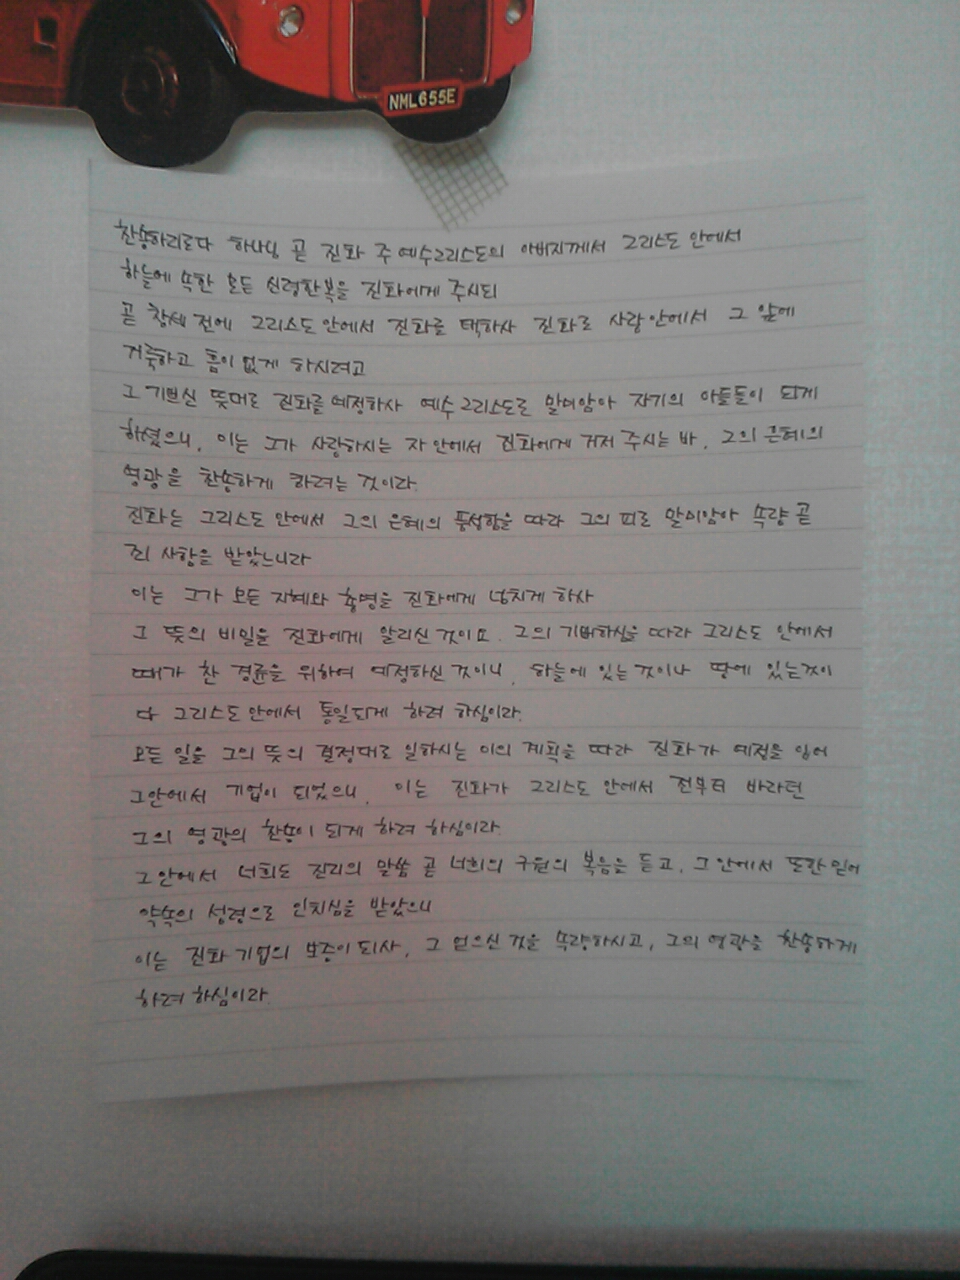 NML655E
찬송하리로다 하나님 곧 진화 주 예수그리스도의 아버지께서 그리스도 안에서
하늘에 속한 모든 신령한복을 진화에게 주시되
곧 창세 전에 그리스도 안에서 진화를 택하사 진화로 사랑안에서 그 앞에
거룩하고 흠이 없게 하시려고
그 기쁘신 뜻대로 진화를 예정하사 예수 그리스도로 말미암아 자기의 아들들이 되게
하셨으니, 이는 그가 사랑하시는 자 안에서 진화에게 거저 주시는 바, 그의 은혜의
영광을 찬송하게 하려는 것이라.
진화는 그리스도 안에서 그의 은혜의 풍성함을 따라 그의 피로 말미암아 속량 곧
죄 사함을 받았느니라
이는 그가 모든 지혜와 총명을 진화에게 넘치게 하사
그 뜻의 비밀을 진화에게 알리신 것이요. 그의 기뻐하심을 따라 그리스도 안에서
때가 찬 경륜을 위하여 예정하신 것이니, 하늘에 있는 것이나 땅에 있는것이
다 그리스도 안에서 통일되게 하려 하심이라.
모든 일을 그의 뜻의 결정대로 일하시는 이의 계획을 따라 진화가 예정을 입어
그안에서 기업이 되었으니, 이는 진화가 그리스도 안에서 전부터 바라던
그의 영광의 찬송이 되게 하려 하심이라.
그 안에서 너희도 진리의 말씀 곧 너희의 구원의 복음을 듣고, 그 안에서 또한 믿어
약속의 성령으로 인치심을 받았으니
이는 진화 기업의 보증이 되사, 그 얻으신 것을 속량하시고, 그의 영광을 찬송하게
하려 하심이라.